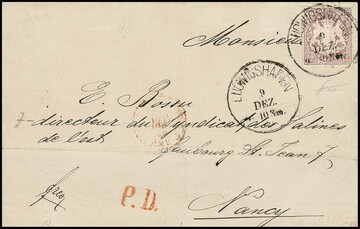 Monsieur
LUDWIGSHAFEN
9
DEZ.
LUDWIGSHAFEN
9
DEZ.
10 Nm.
E. Bossu
directeur du Syndicat des Salines
de l'est
Faubourg St. Jean 7
franco
P.D.
Nancy